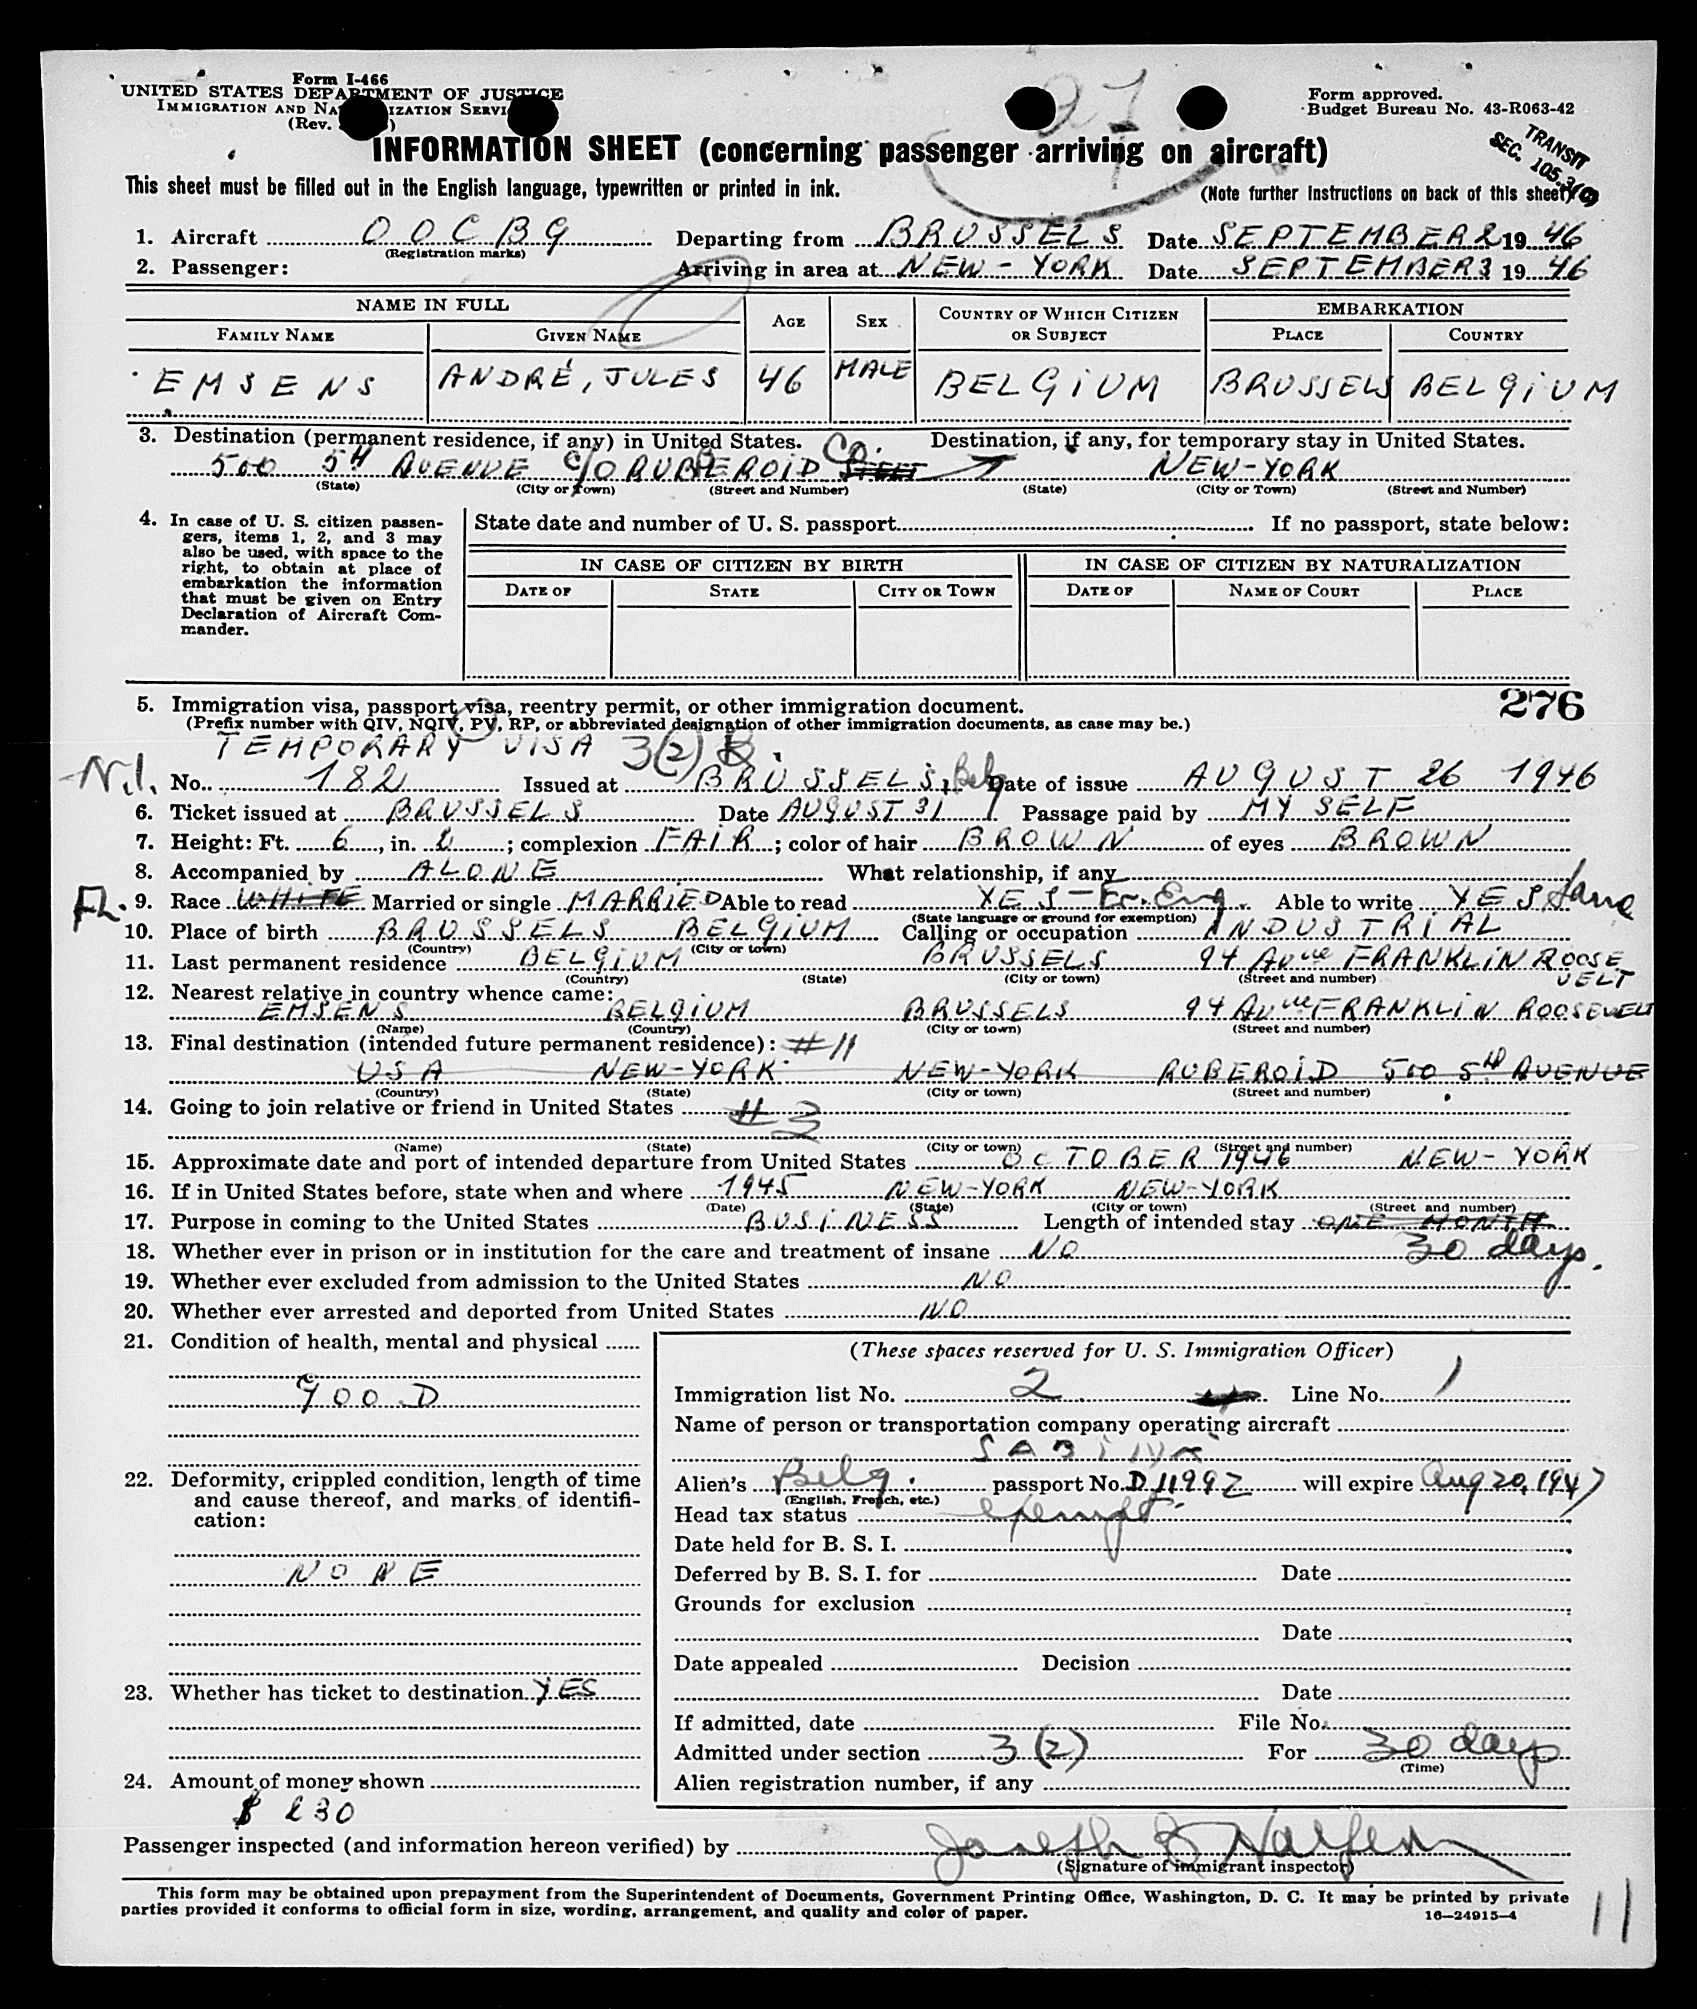 Form I-466
UNITED STATES DEPARTMENT OF JUSTICE
IMMIGRATION AND NATURALIZATION SERVICE
(Rev. )
27
Form approved.
Budget Bureau No. 43-R063-42
TRANSIT
SEC. 105.3
INFORMATION SHEET (concerning passenger arriving on aircraft)
This sheet must be filled out in the English language, typewritten or printed in ink.
(Note further instructions on back of this sheet)
1. Aircraft OOCBG Departing from BRUSSELS Date SEPTEMBER 2 1946
(Registration marks)
2. Passenger: Arriving in area at NEW-YORK Date SEPTEMBER 3 1946
NAME IN FULL AGE SEX COUNTRY OF WHICH CITIZEN OR SUBJECT EMBARKATION
FAMILY NAME GIVEN NAME PLACE COUNTRY
EMSENS ANDRÉ, JULES 46 MALE BELGIUM BRUSSELS BELGIUM
3. Destination (permanent residence, if any) in United States. Destination, if any, for temporary stay in United States.
500 5H AVENUE c/o RUBEROID Co. STREET NEW-YORK
(State) (City or Town) (Street and Number) (State) (City or Town) (Street and Number)
4. In case of U. S. citizen passengers, items 1, 2, and 3 may also be used, with space to the right, to obtain at place of embarkation the information that must be given on Entry Declaration of Aircraft Commander.
State date and number of U. S. passport If no passport, state below:
IN CASE OF CITIZEN BY BIRTH IN CASE OF CITIZEN BY NATURALIZATION
DATE OF STATE CITY OR TOWN DATE OF NAME OF COURT PLACE
5. Immigration visa, passport visa, reentry permit, or other immigration document.
276
(Prefix number with QIV, NQIV, PV, RP, or abbreviated designation of other immigration documents, as case may be.)
TEMPORARY VISA 3(2) B.
N.I. No. 182 Issued at BRUSSELS, Belg Date of issue AUGUST 26 1946
6. Ticket issued at BRUSSELS Date AUGUST 31 Passage paid by MY SELF
7. Height: Ft. 6, in. 2; complexion FAIR; color of hair BROWN of eyes BROWN
8. Accompanied by ALONE What relationship, if any
Fl. 9. Race WHITE Married or single MARRIED Able to read YES - Fr. Eng. Able to write YES Same
(State language or ground for exemption)
10. Place of birth BRUSSELS BELGIUM Calling or occupation INDUSTRIAL
(Country) (City or town)
11. Last permanent residence BELGIUM BRUSSELS 94 Avnue FRANKLIN ROOSEVELT
(Country) (State) (City or town) (Street and number)
12. Nearest relative in country whence came:
EMSENS BELGIUM BRUSSELS 94 Avnue FRANKLIN ROOSEVELT
(Name) (Country) (City or town) (Street and number)
13. Final destination (intended future permanent residence): #11
USA NEW-YORK NEW-YORK RUBEROID 500 5H AVENUE
(Country) (State) (City or town) (Street and number)
14. Going to join relative or friend in United States #3
(Name) (State) (City or town) (Street and number)
15. Approximate date and port of intended departure from United States OCTOBER 1946 NEW-YORK
16. If in United States before, state when and where 1945 NEW-YORK NEW-YORK
(Date) (State) (City or town) (Street and number)
17. Purpose in coming to the United States BUSINESS Length of intended stay ONE MONTH
18. Whether ever in prison or in institution for the care and treatment of insane NO 30 days.
19. Whether ever excluded from admission to the United States NO
20. Whether ever arrested and deported from United States NO
21. Condition of health, mental and physical
GOOD
22. Deformity, crippled condition, length of time and cause thereof, and marks of identification:
NONE
23. Whether has ticket to destination YES
24. Amount of money shown
$ 230
(These spaces reserved for U. S. Immigration Officer)
Immigration list No. 2 Line No. 1
Name of person or transportation company operating aircraft
SABINA
Alien's Belg. passport No. D 11992 will expire Aug 20, 1947
(English, French, etc.)
Head tax status exempt
Date held for B. S. I.
Deferred by B. S. I. for Date
Grounds for exclusion
Date
Date appealed Decision
Date
If admitted, date File No.
Admitted under section 3(2) For 30 days
(Time)
Alien registration number, if any
Passenger inspected (and information hereon verified) by Joseph B Halfern
(Signature of immigrant inspector)
This form may be obtained upon prepayment from the Superintendent of Documents, Government Printing Office, Washington, D. C. It may be printed by private
parties provided it conforms to official form in size, wording, arrangement, and quality and color of paper.
16—24915-4
11